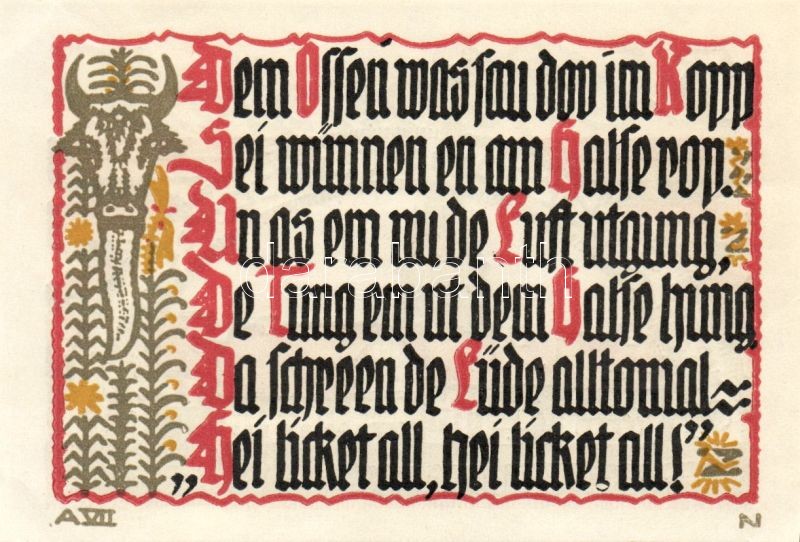 Dem Ossen was sau dov im Kopp
Sei wünnen en am Halse rop.
Un as em nu de Luft utgung,
De Tung em ut dem Halse hung
Da schreen de Lüde alltomal
„Hei licket all, hei licket all!”
A VII
N
darabanth